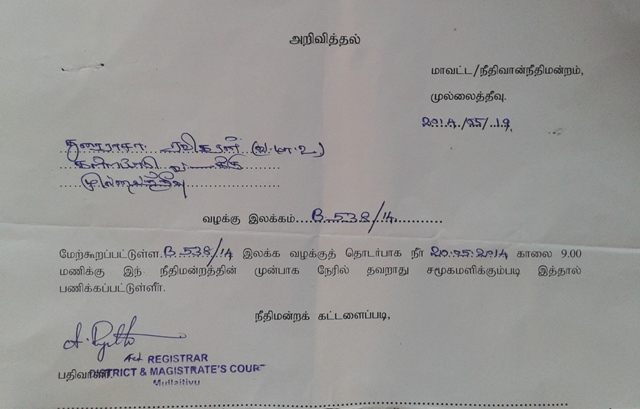 அறிவித்தல்
மாவட்ட/நீதிவான்நீதிமன்றம்,
முல்லைத்தீவு.
2014/05/19
துரைராசா ரவிகரன் (வ.மா.உ)
கள்ளப்பாடு
முல்லைத்தீவு
வழக்கு இலக்கம். B 538/14
மேற்கூறப்பட்டுள்ள B 538/14 இலக்க வழக்குத் தொடர்பாக நீர் 20.05.2014 காலை 9.00
மணிக்கு இந் நீதிமன்றத்தின் முன்பாக நேரில் தவறாது சமூகமளிக்கும்படி இத்தால்
பணிக்கப்பட்டுள்ளீர்.
நீதிமன்றக் கட்டளைப்படி,
Act REGISTRAR
பதிவாளர்.
DISTRICT & MAGISTRATE'S COURT
Mullaitivu